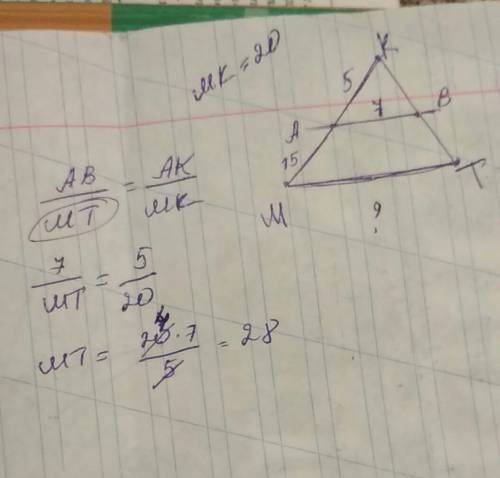 MK = 20
K
5
7
A
B
15
M
T
?
AB/MT = AK/MK
7/MT = 5/20
MT = 20·7/5 = 28
4